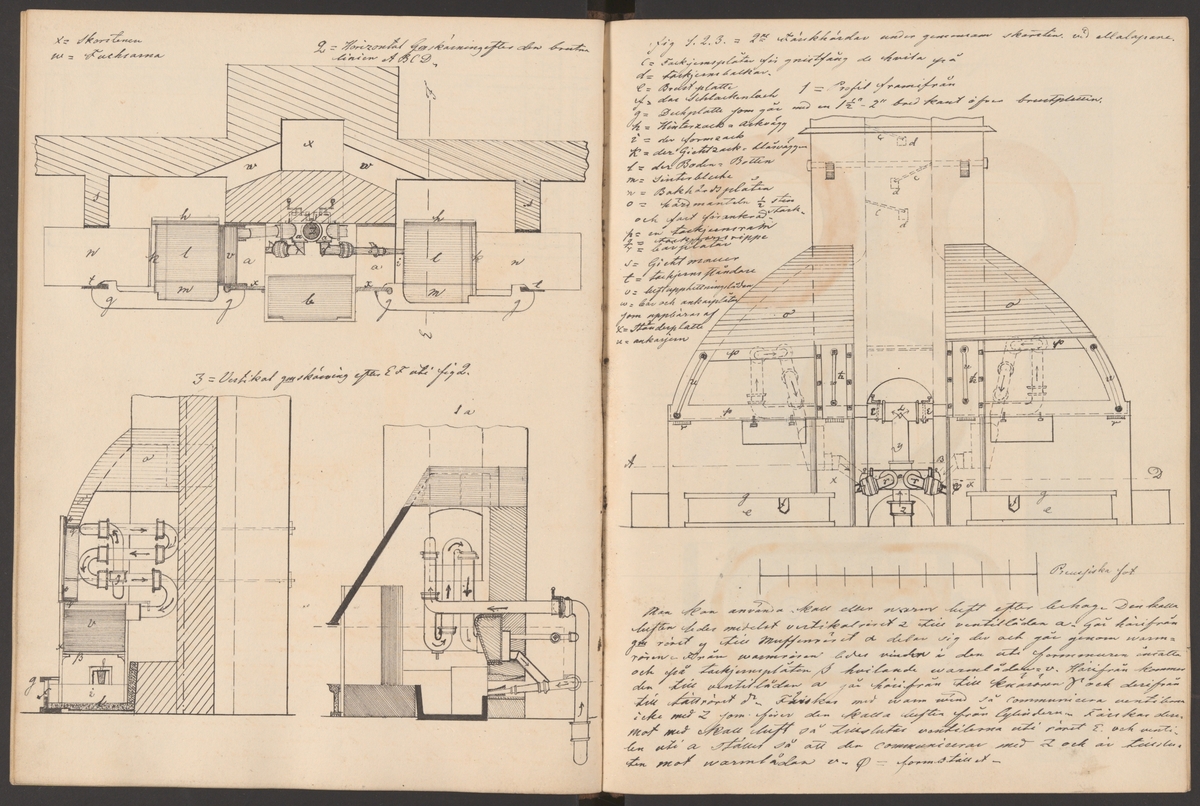 x = Skorstenen
w = Fuchsarna
2 = Horizontal genskärning efter den brutna
linien ABCD.
3 = Vertikal genskärning efter EF uti fig 2.
1 a
Fig 1. 2. 3. = 2ne Färskhärdar under gemensam skorsten vid
c = Tackjernsplåtar för gnistfång de hvila på
d = tackjernsbalkar.
e = Brust platte
f = das Schlackenloch
1 = Profil framifrån
g = Deckplatte som går med en 1½" - 2" bred kant öfver brustplatten.
h = Hinterzack = askvägg
i = der formzack
k = der Gichtzack = blåsvägg
l = der Boden = Botten
m = Sinterbleche
n = Bakhärdsplåten
o = härdmanteln ½ sten
och fast förankrad
p = en tackjernsram
r = bärplåtar
s = Gicht mauer
t = tackjernsständare
v = luftupphettningslådan
w = bär och ankarplåtar
som uppbäras af
x = Ständerplatte
u = ankarjern
Preussiska fot
Man kan använda kall eller warm luft efter behag. Den kalla
luften ledes medelst vertikalröret z till ventillådan a. Går härifrån
gm röret y till Muffenröret α delar sig der och går genom warm-
rören. Från warmrören ledes vinden i den uti formmuren insatta
och på tackjernsplåten β hvilande warmlådan v. Härifrån kommer
den till ventillådan a går härifrån till knärören γ och derifrån
till tättröret δ. Färskas med warm wind så communicera ventilerna
icke med z som förer den kalla luften från Cylindern. Färskas der-
mot med kall luft så tillslutes ventilerna uti röret ε och venti-
len uti a ställes så att den communicerar med z och är tillslu-
ten mot warmlådan v. φ = formstället